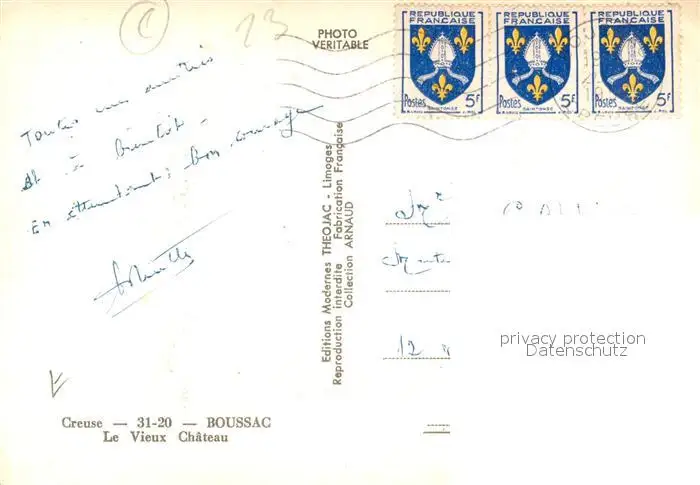 13
PHOTO
VERITABLE
REPUBLIQUE FRANÇAISE
Postes 5F
SAINTONGE
REPUBLIQUE FRANÇAISE
Postes 5F
SAINTONGE
REPUBLIQUE FRANÇAISE
Postes 5F
SAINTONGE
Toutes mes amitiés
et à bientôt -
En attendant, bon courage
Editions Modernes THEOJAC - Limoges
Reproduction interdite Fabrication Française
Collection ARNAUD
12
privacy protection
Datenschutz
Creuse — 31-20 — BOUSSAC
Le Vieux Château